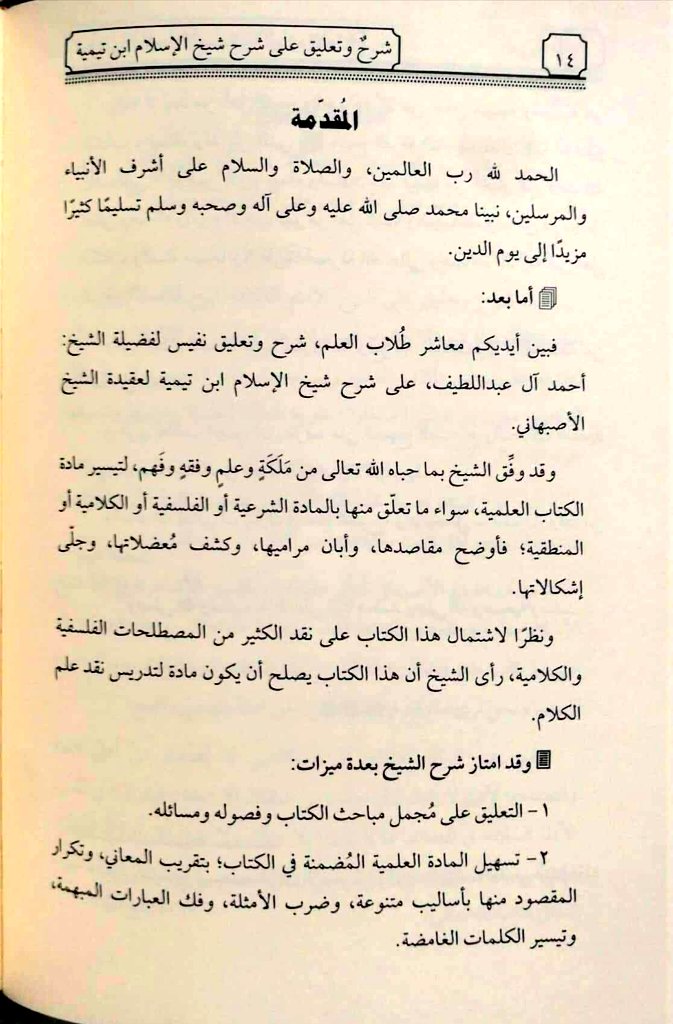 ١٤
شرحٌ وتعليق على شرح شيخ الإسلام ابن تيمية
المُقدّمة
الحمد لله رب العالمين، والصلاة والسلام على أشرف الأنبياء
والمرسلين، نبينا محمد صلى الله عليه وعلى آله وصحبه وسلم تسليمًا كثيرًا
مزيدًا إلى يوم الدين.
أما بعد:
فبين أيديكم معاشر طُلاب العلم، شرح وتعليق نفيس لفضيلة الشيخ:
أحمد آل عبداللطيف، على شرح شيخ الإسلام ابن تيمية لعقيدة الشيخ
الأصبهاني.
وقد وفِّق الشيخ بما حباه الله تعالى من مَلَكَةٍ وعلمٍ وفقهٍ وفَهم، لتيسير مادة
الكتاب العلمية، سواء ما تعلّق منها بالمادة الشرعية أو الفلسفية أو الكلامية أو
المنطقية؛ فأوضح مقاصدها، وأبان مراميها، وكشف مُعضلاتها، وجلّى
إشكالاتها.
ونظرًا لاشتمال هذا الكتاب على نقد الكثير من المصطلحات الفلسفية
والكلامية، رأى الشيخ أن هذا الكتاب يصلح أن يكون مادة لتدريس نقد علم
الكلام.
وقد امتاز شرح الشيخ بعدة ميزات:
١- التعليق على مُجمل مباحث الكتاب وفصوله ومسائله.
٢- تسهيل المادة العلمية المُضمنة في الكتاب؛ بتقريب المعاني، وتكرار
المقصود منها بأساليب متنوعة، وضرب الأمثلة، وفك العبارات المبهمة،
وتيسير الكلمات الغامضة.